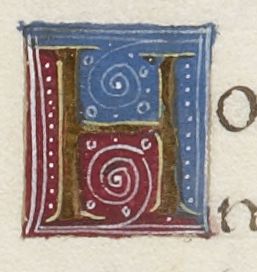 Ho
n